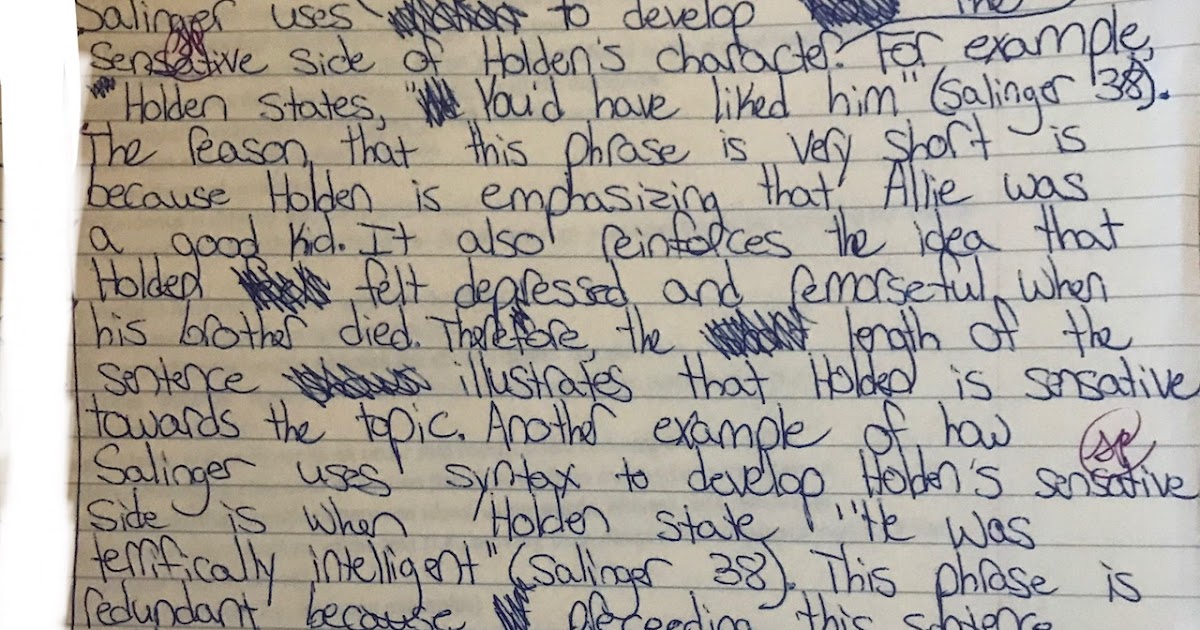 Salinger uses to develop the
sensative side of Holden's character. For example,
Holden states, "You'd have liked him" (Salinger 38).
The reason, that this phrase is very short is
because Holden is emphasizing that Allie was
a good kid. It also reinforces the idea that
Holden felt depressed and remorseful, when
his brother died. Therefore, the length of the
sentence illustrates that Holden is sensative
towards the topic. Another example of how
sp
Salinger uses syntax to develop Holden's sensative
side is when Holden state "He was
terrifically intelligent" (Salinger 38). This phrase is
redundant because this sentence